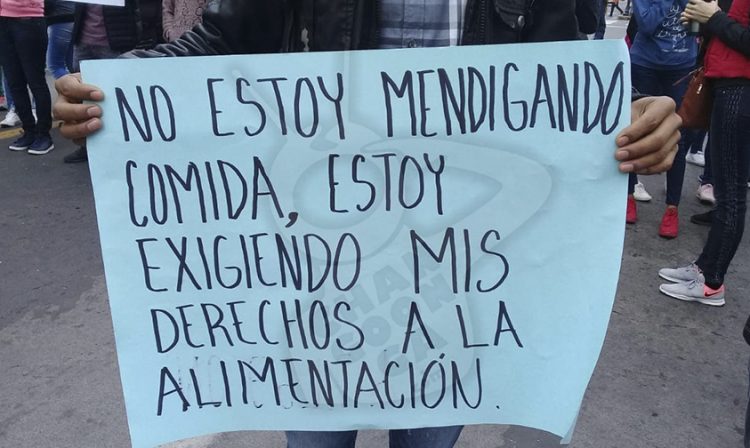 NO ESTOY MENDIGANDO
COMIDA, ESTOY
EXIGIENDO MIS
DERECHOS A LA
ALIMENTACIÓN.